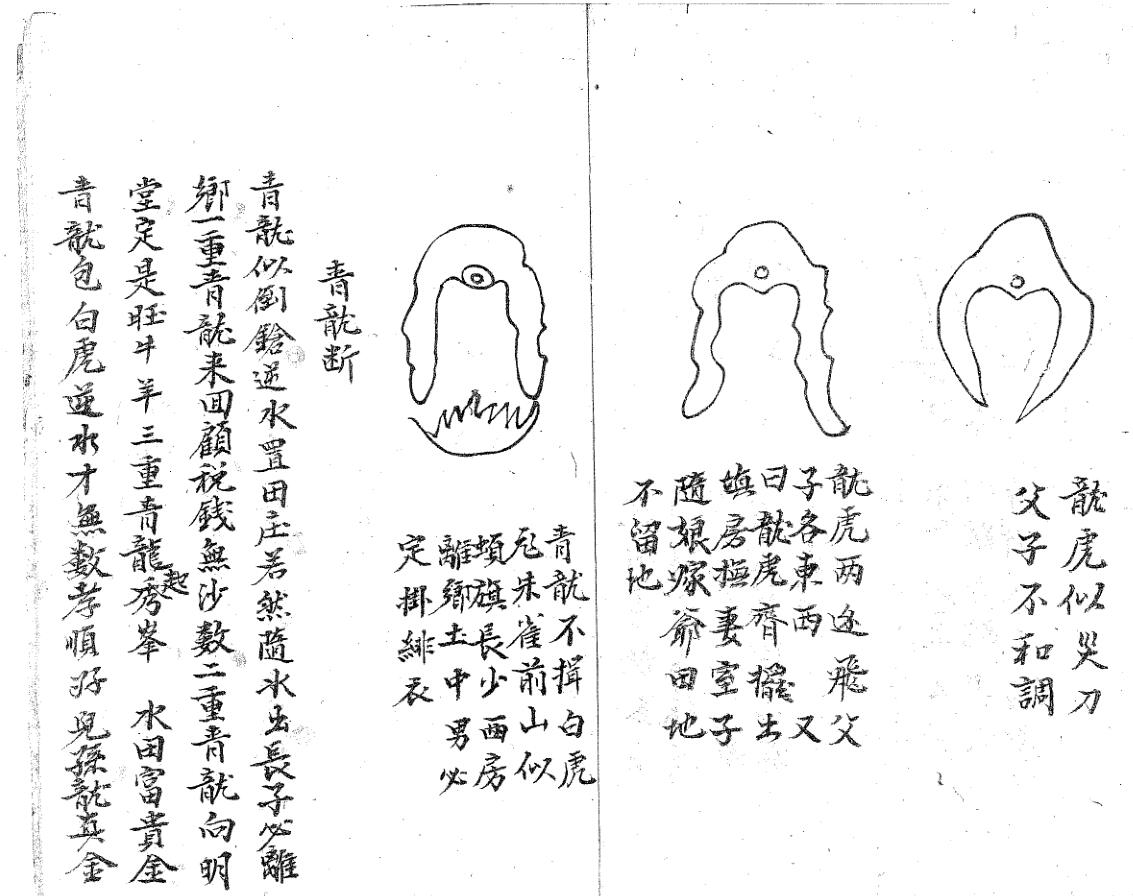 龍虎似災刀
父子不和調
龍虎两途飛父
子各東西又
曰龍虎齊擺出
填房撫妻室子
隨娘嫁爺田地
不留地
青龍不揖白虎
尼朱雀前山似
頓旗長少両房
離鄉土中男必
定掛緋衣
青龍断
青龍似倒鎗逆水置田庄若然隨水出長子必離
鄉一重青龍来囬顧稅銭無沙數二重青龍向明
堂定是旺牛羊三重青龍秀起峯水田富貴金
青龍包白虎逆水才無數孝順好兒孫龍真金